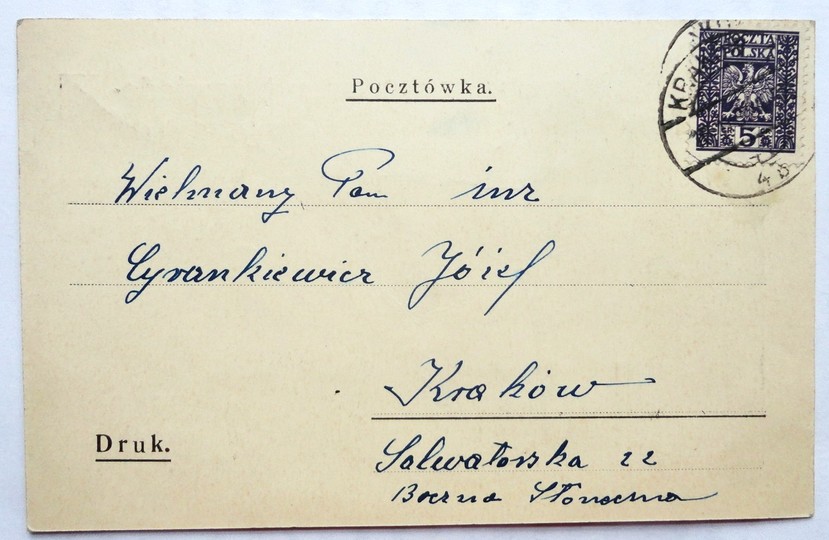 Pocztówka.
KRAK
POCZTA
POLSKA
5
4 8
Wielmożny Pan inż
Cyrankiewicz Józef
Kraków
Druk.
Salwatorska 22
Boczna Słoneczna